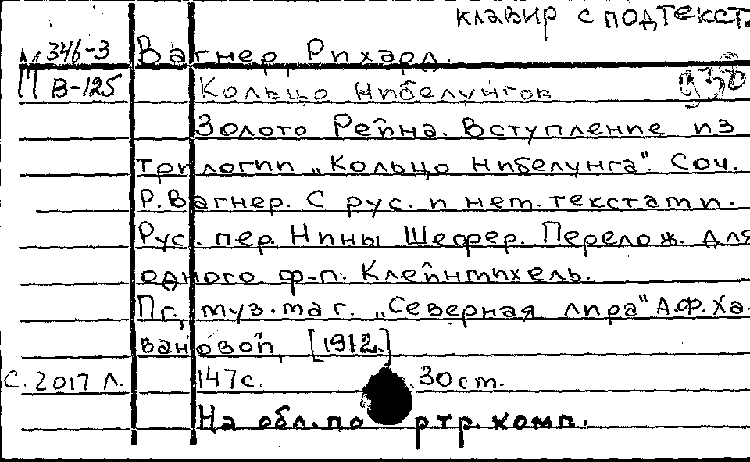 клавир с подтекст
М 346-3 Вагнер, Рихард.
В-125 Кольцо Нибелунгов
Золото Рейна. Вступление из
трилогии „Кольцо Нибелунга". Соч.
Р. Вагнер. С рус. и нем. текстами.
Рус. пер. Нины Шефер. Перелож. для
одного ф-п. Клейнмихель.
Пг., муз. маг. „Северная лира" А.Ф. Ха-
вановой, [1912.]
С. 2017 л. 147 с. 30 ст.
На обл. портр. комп.